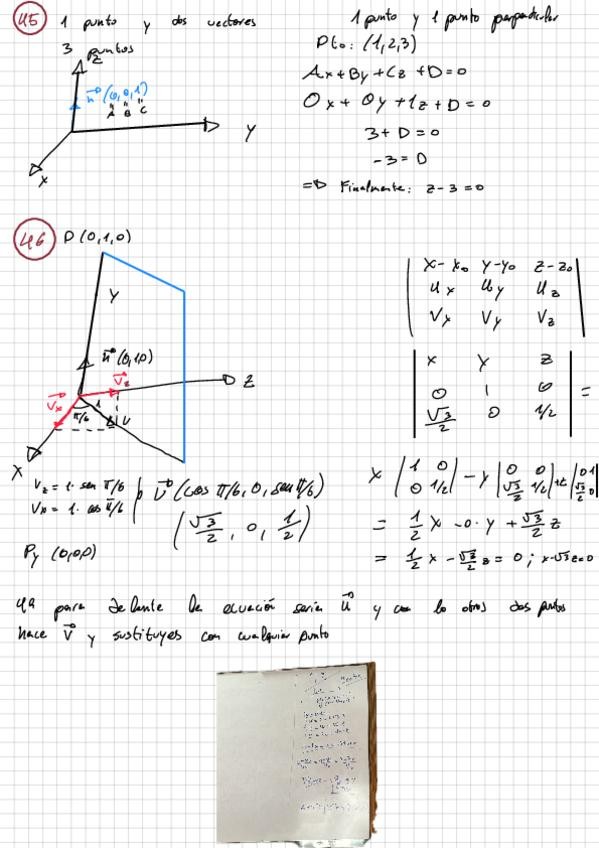 45 1 punto y dos vectores
3 puntos
Z
n (0,0,1)
A B C
Y
X
1 punto y 1 punto perpendicular
Pto: (1,2,3)
Ax + By + Cz + D = 0
0x + 0y + 1z + D = 0
3 + D = 0
-3 = D
=> Finalmente: z - 3 = 0
46 P(0,1,0)
Y
n (0,1,0)
Vz
Z
Vx
π/6
1
U
X
Vz = 1 · sen π/6
Vx = 1 · cos π/6
U (cos π/6, 0, sen π/6)
(√3/2, 0, 1/2)
Py (0,0,0)
| x - x0 y - y0 z - z0 |
| ux uy uz |
| Vx Vy Vz |
| x y z |
| 0 1 0 | =
| √3/2 0 1/2 |
x | 1 0 | - y | 0 0 | + z | 0 1 |
| 0 1/2 | | √3/2 1/2 | | √3/2 0 |
= 1/2 x - 0 · y + √3/2 z
= 1/2 x - √3/2 z = 0 ; x - √3 z = 0
49 para delante la ecuación sería u y con lo otros dos puntos
hace V y sustituyes con cualquier punto